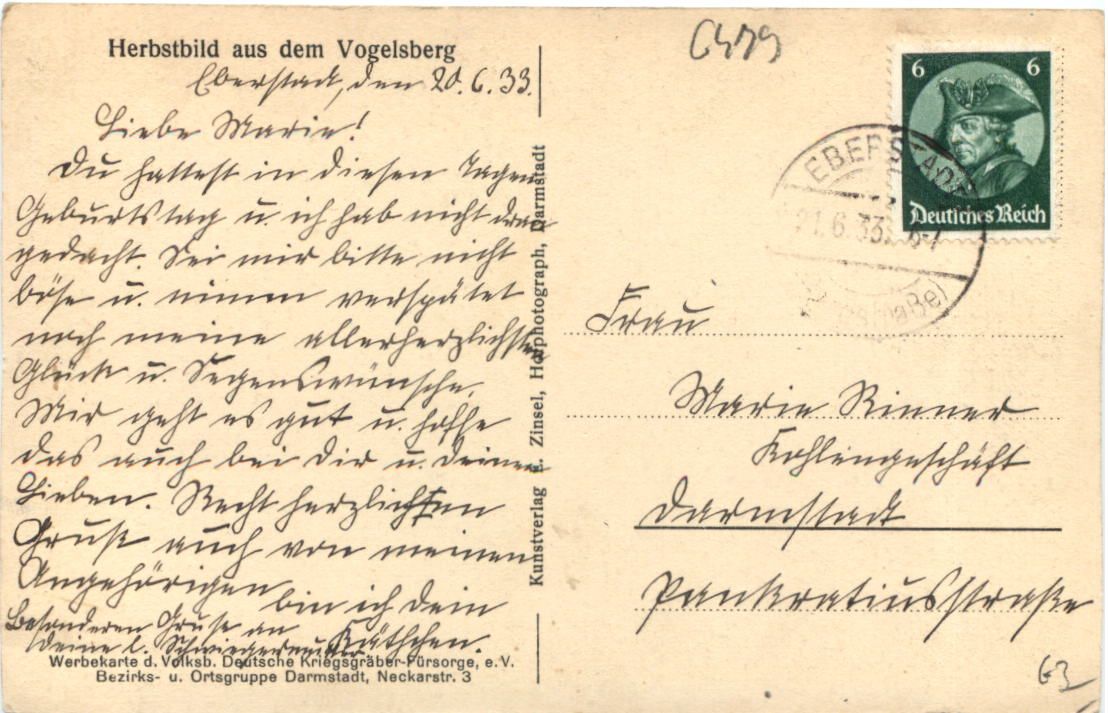 Herbstbild aus dem Vogelsberg
Eberstadt, den 20.6.33.
Liebe Marie!
Du hattest in diesen Tagen
Geburtstag u. ich hab nicht dran
gedacht. Sei mir bitte nicht
böse u. nimm verspätet
noch meine allerherzlichsten
Glück u. Segenswünsche.
Mir geht es gut u. hoffe
das auch bei Dir u. Deinen
Lieben. Recht herzlichen
Gruß auch von meinen
Angehörigen bin ich Dein
Käthchen.
Besonderen Gruß an
Deine l. Schwiegermutter
Werbekarte d. Volksb. Deutsche Kriegsgräber-Fürsorge, e. V.
Bezirks- u. Ortsgruppe Darmstadt, Neckarstr. 3
Kunstverlag E. Zinsel, Hofphotograph, Darmstadt
6479
6 6
Deutsches Reich
EBERSTADT
21.6.33. 6-7
Frau
Marie Rinner
Kohlengeschäft
Darmstadt
Pankratiusstraße
63